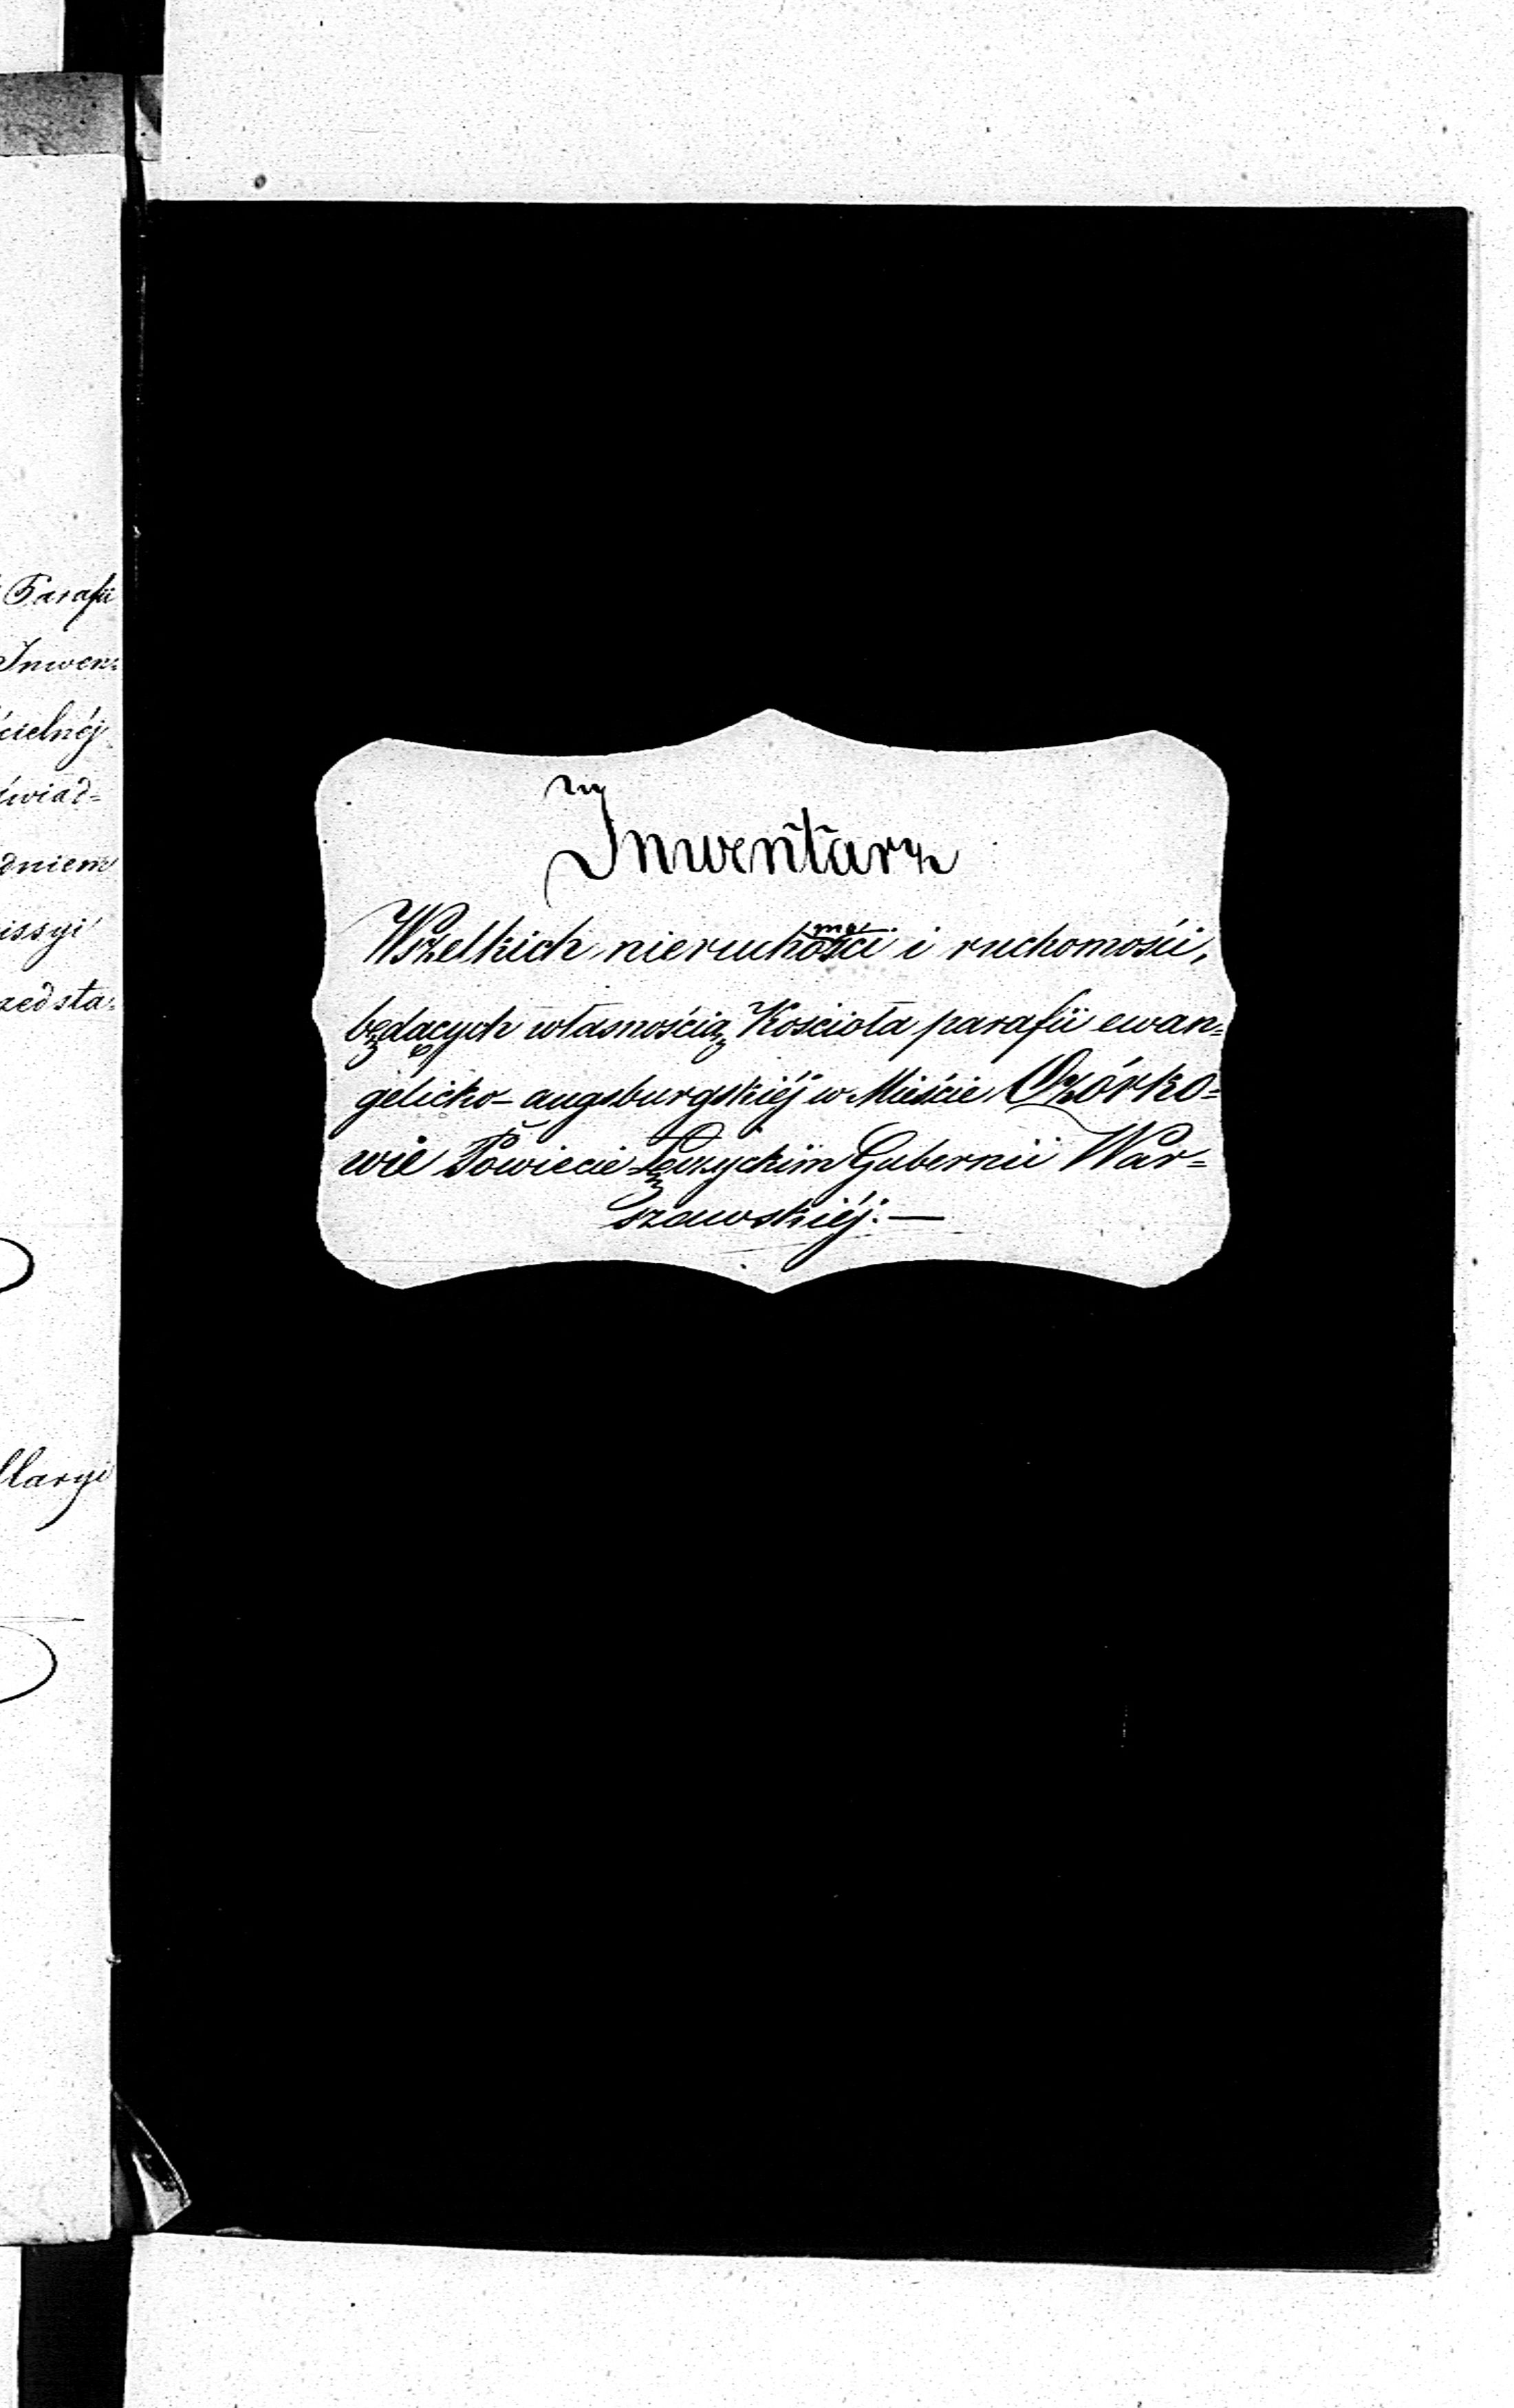 Parafii
Inwen=
cielnéj
świad=
dniem
issyi
zedsta=
llaryi
Inwentarz
Wszelkich nieruchomości i ruchomości,
będących własnością Kościoła parafii ewan=
gelicko-augsburgskiéj w Mieście Ozórko=
wie Powiecie Łęczyckim Gubernii War=
szawskiéj.—